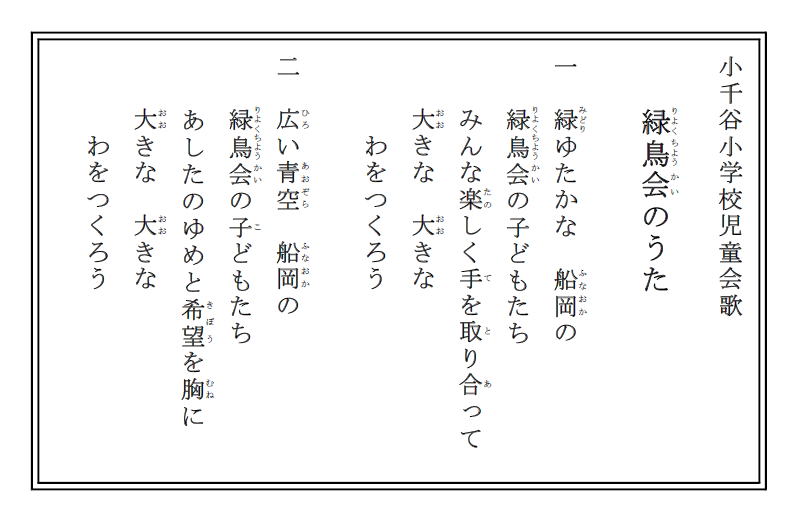 小千谷小学校児童会歌
緑鳥会のうた
一 緑ゆたかな 船岡の
緑鳥会の子どもたち
みんな楽しく手を取り合って
大きな 大きな
わをつくろう
二 広い青空 船岡の
緑鳥会の子どもたち
あしたのゆめと希望を胸に
大きな 大きな
わをつくろう